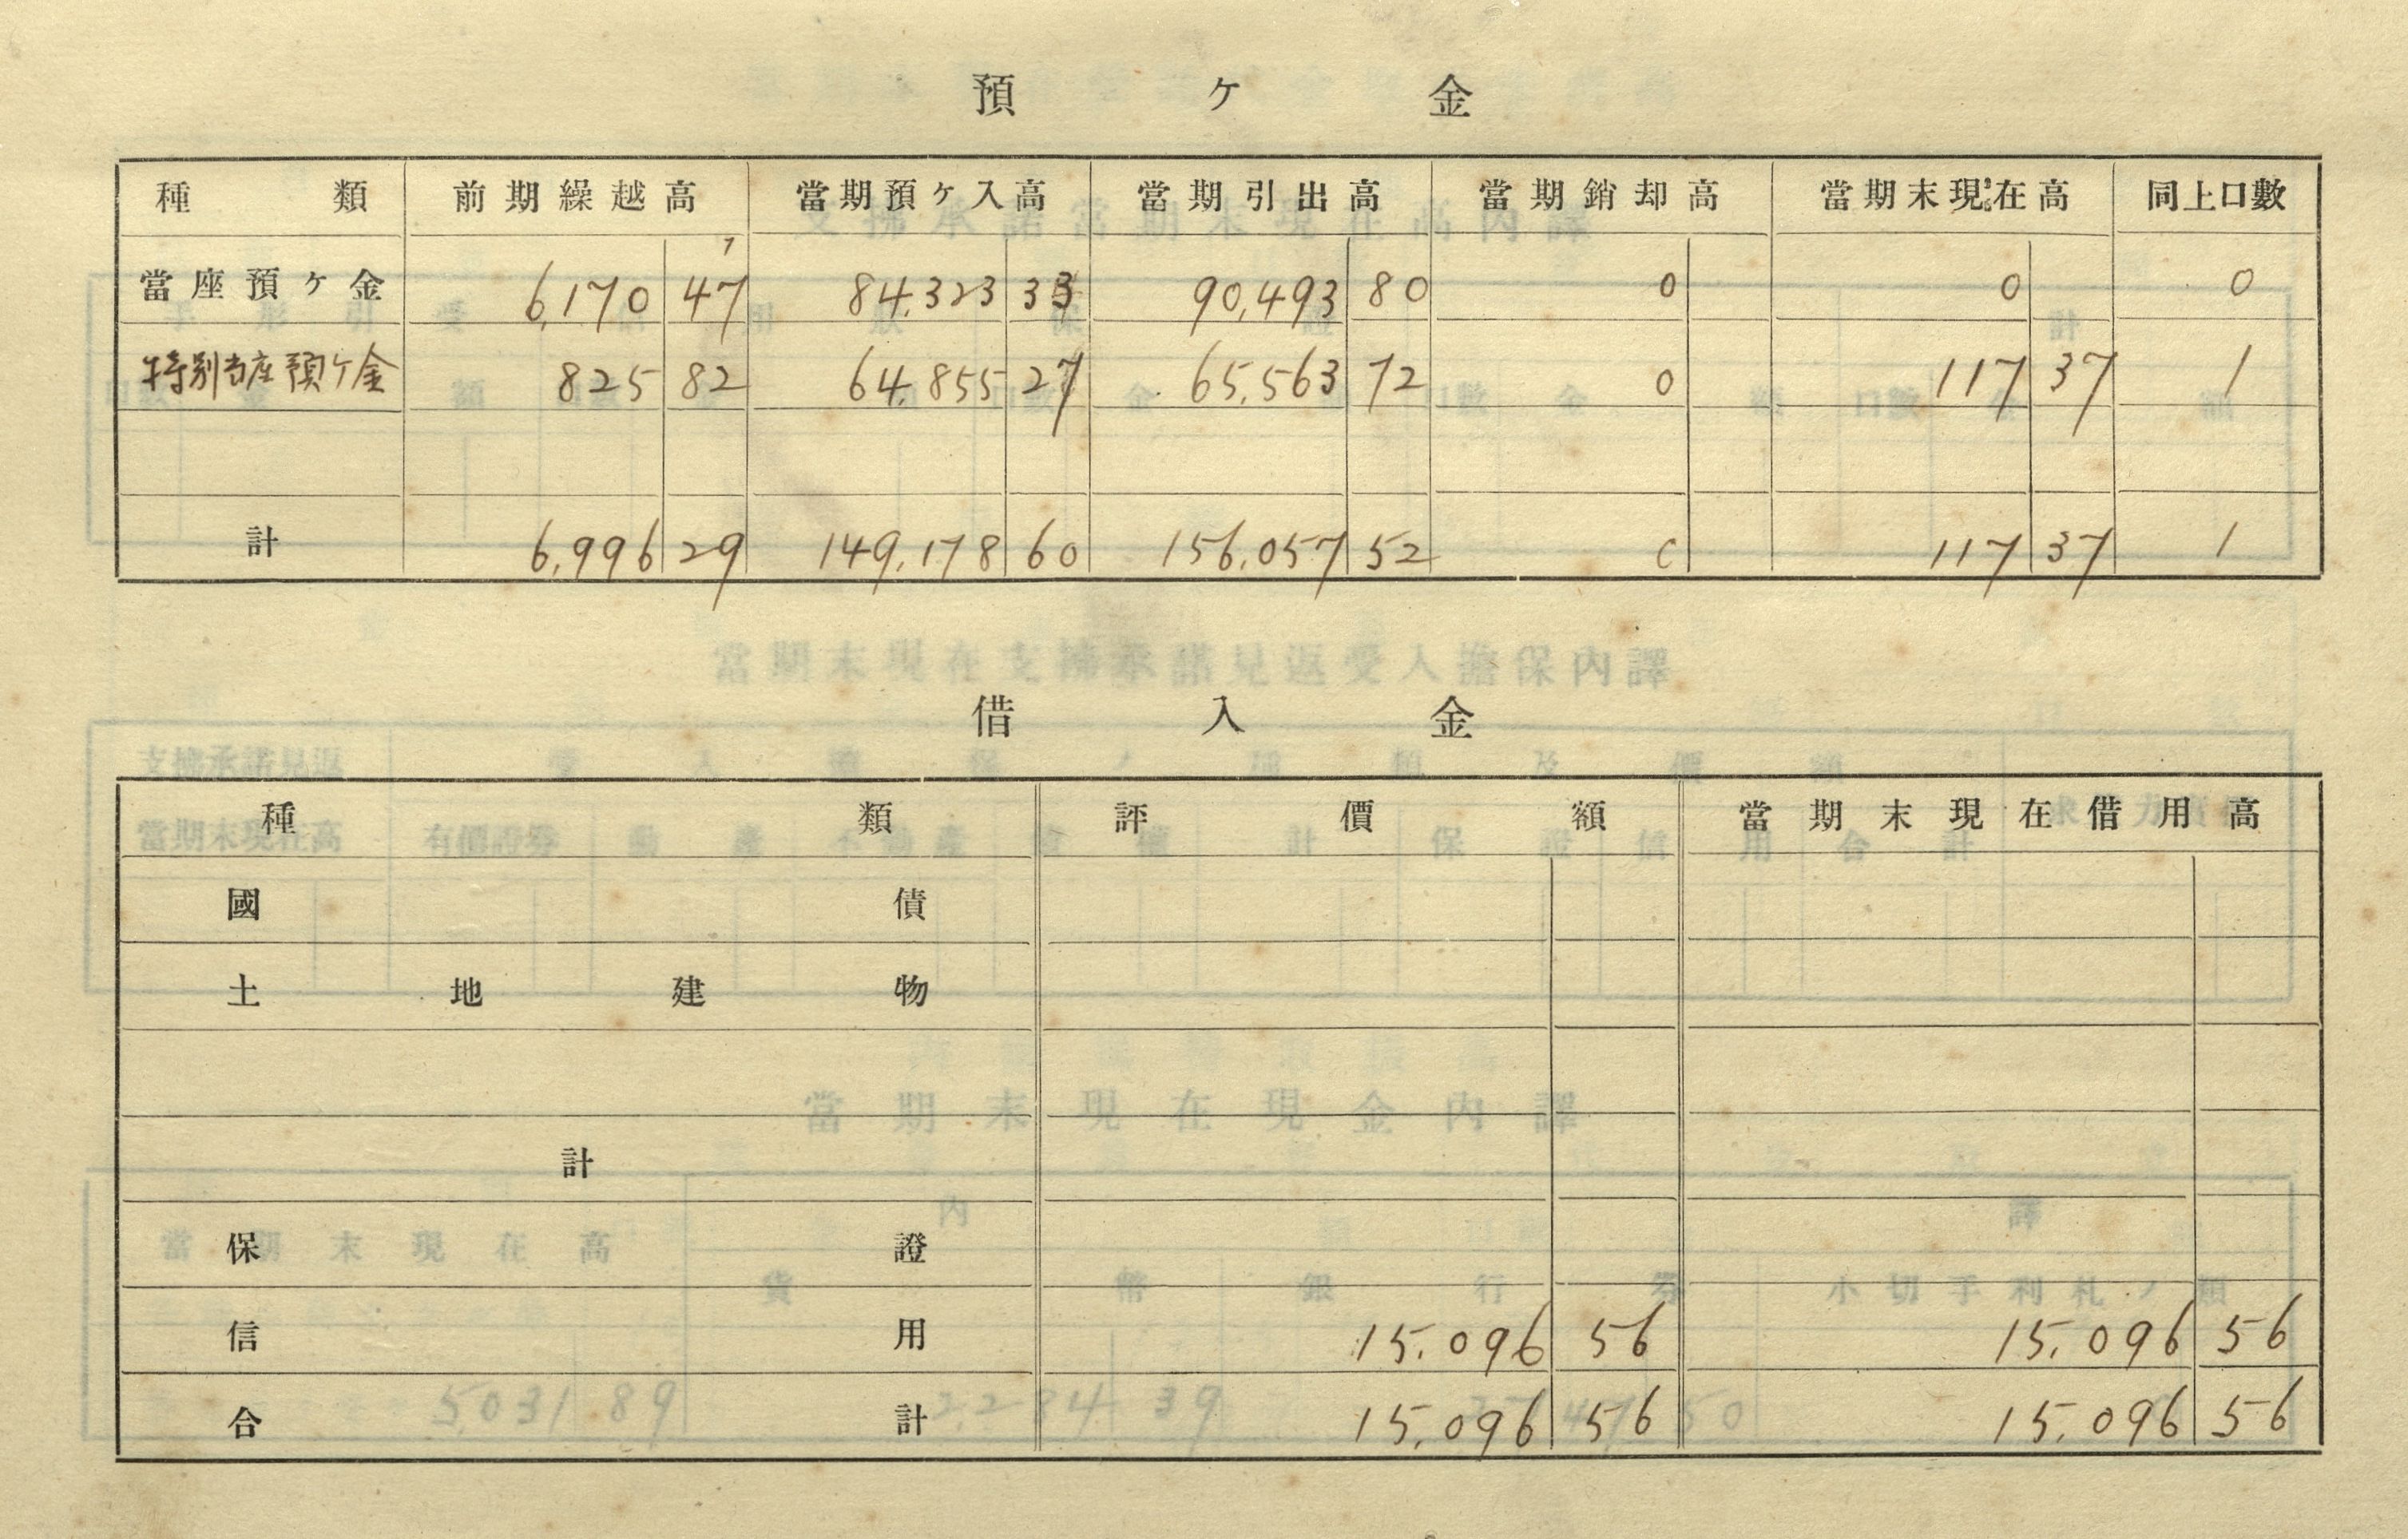 預ケ金
種類 前期繰越高 當期預ケ入高 當期引出高 當期銷却高 當期末現在高 同上口數
當座預ケ金 6,170 47 84,323 33 90,493 80 0 0 0
特別当座預ケ金 825 82 64,855 27 65,563 72 0 117 37 1
計 6,996 29 149,178 60 156,057 52 0 117 37 1
借入金
種類 評價額 當期末現在借用高
國債
土地建物
計
保證
信用 15,096 56 15,096 56
合計 15,096 56 15,096 56